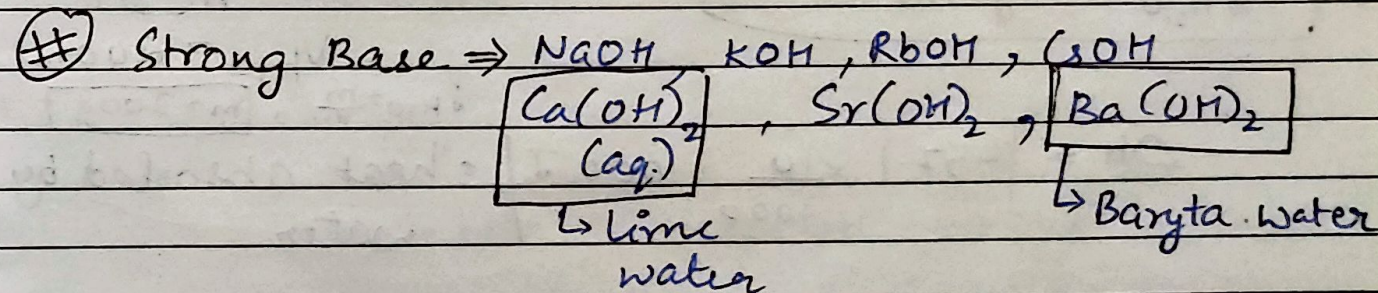 # Strong Base ⇒ NaOH, KOH, RbOH, CsOH
Ca(OH)₂, Sr(OH)₂, Ba(OH)₂
(aq.)
↳ Lime water
↳ Baryta water